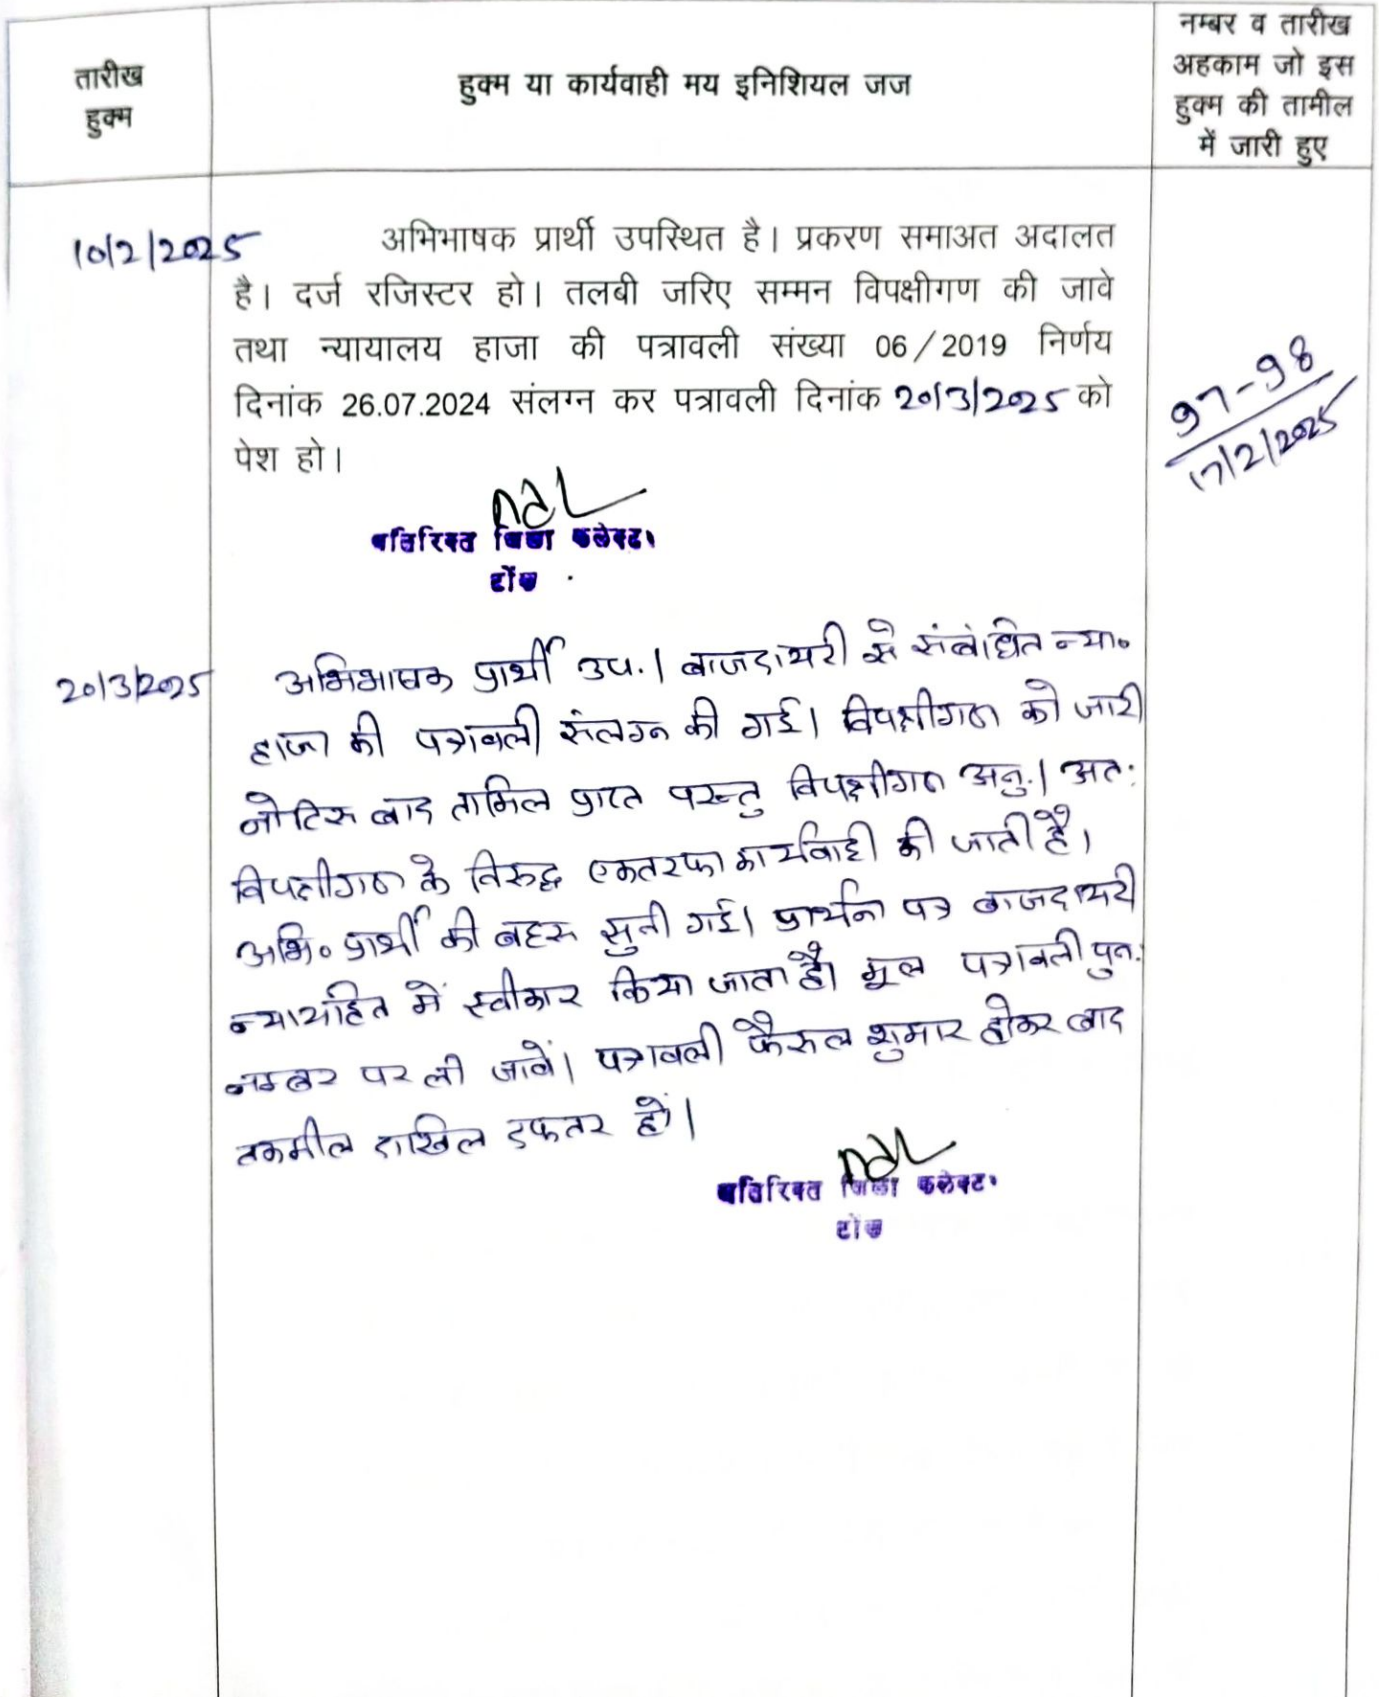 तारीख
हुक्म
हुक्म या कार्यवाही मय इनिशियल जज
नम्बर व तारीख
अहकाम जो इस
हुक्म की तामील
में जारी हुए
10/2/2025
अभिभाषक प्रार्थी उपस्थित है। प्रकरण समाअत अदालत
है। दर्ज रजिस्टर हो। तलबी जरिए सम्मन विपक्षीगण की जावे
तथा न्यायालय हाजा की पत्रावली संख्या 06/2019 निर्णय
दिनांक 26.07.2024 संलग्न कर पत्रावली दिनांक 20/3/2025 को
पेश हो।
97-98
17/2/2025
अतिरिक्त जिला कलेक्टर
टोंक
20/3/2025
अभिभाषक प्रार्थी उप.। बाजदायरी से संबंधित न्या०
हाजा की पत्रावली संलग्न की गई। विपक्षीगण को जारी
नोटिस बाद तामिल प्राप्त परन्तु विपक्षीगण अनु.। अतः
विपक्षीगण के विरुद्ध एकतरफा कार्यवाही की जाती है।
अभि० प्रार्थी की बहस सुनी गई। प्रार्थना पत्र बाजदायरी
न्यायहित में स्वीकार किया जाता है। मूल पत्रावली पुन:
नम्बर पर ली जावें। पत्रावली फैसल शुमार होकर बाद
तकमील दाखिल दफतर हो।
अतिरिक्त जिला कलेक्टर
टोंक